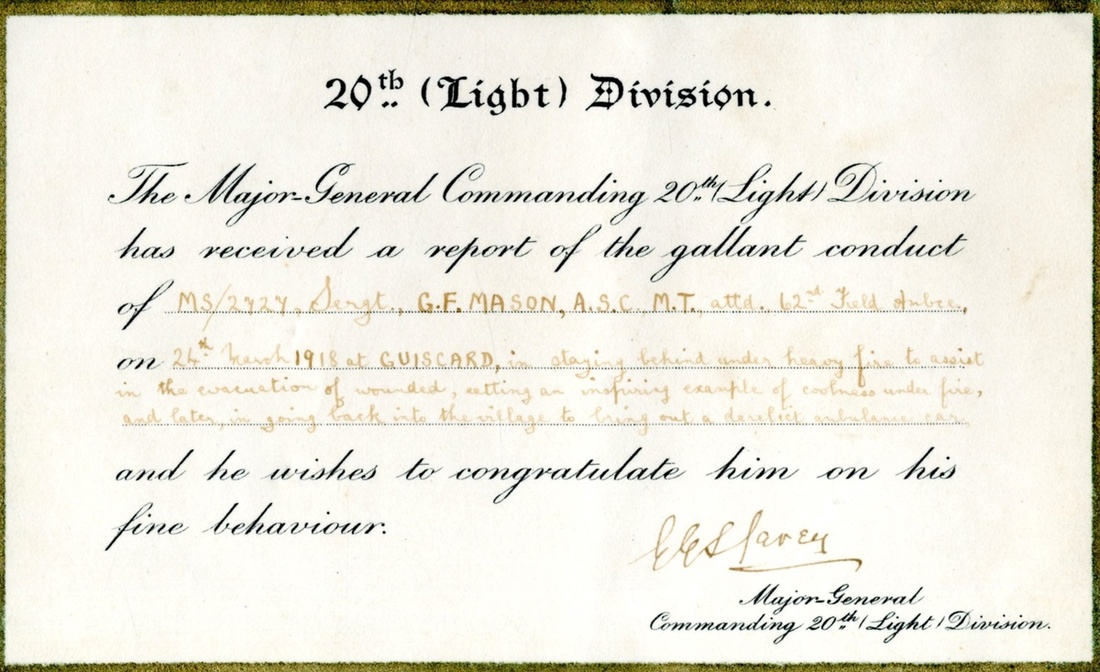 20th (Light) Division.
The Major-General Commanding 20th (Light) Division
has received a report of the gallant conduct
of MS/2727, Sergt., G.F. MASON, A.S.C. M.T., attd. 62nd Field Ambce,
on 24th March 1918 at GUISCARD, in staying behind under heavy fire to assist
in the evacuation of wounded, setting an inspiring example of coolness under fire,
and later, in going back into the village to bring out a derelict ambulance car
and he wishes to congratulate him on his
fine behaviour.
Major-General
Commanding 20th (Light) Division.